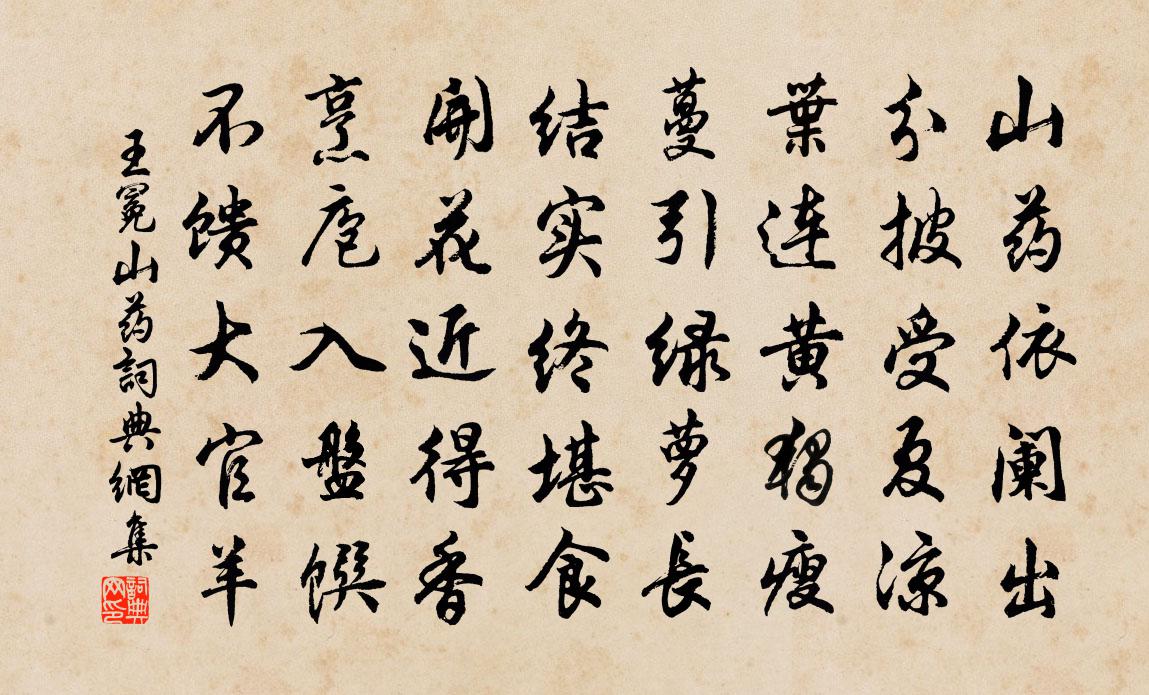 山药依阑出
分披受夏凉
葉连黄独瘦
蔓引绿萝長
结实终堪食
開花近得香
烹庖入盤馔
不馈大官羊
王冕山药詞典網集
詞典网印